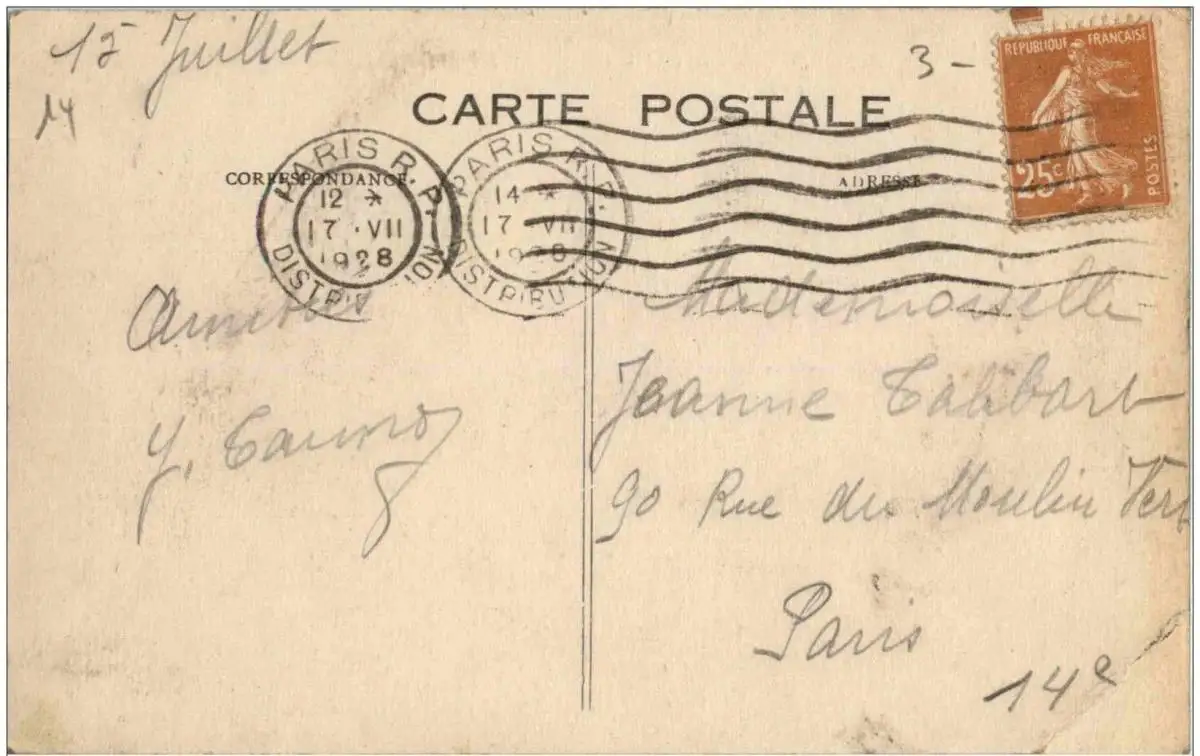 15 Juillet
14
3 -
RÉPUBLIQUE FRANÇAISE
25c
POSTES
CARTE POSTALE
CORRESPONDANCE
ADRESSE
PARIS R. P.
12 *
17 · VII
1928
DISTRIBUTION
PARIS R. P.
14 *
17 · VII
1928
DISTRIBUTION
Amitiés
Y.
Mademoiselle
Jeanne
90 Rue du Moulin Vert
Paris
14e